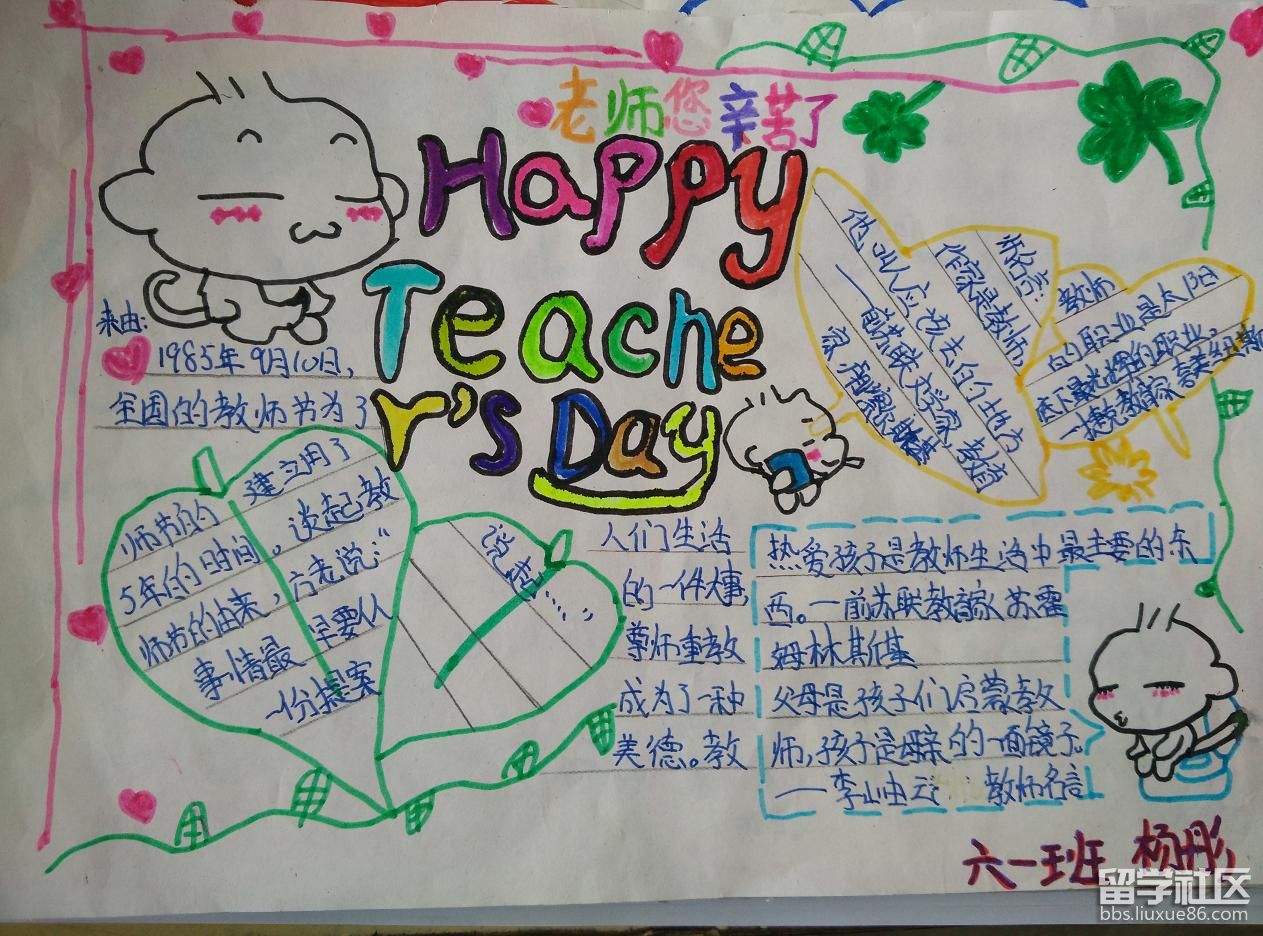 老师您辛苦了
Happy
Teache
r's Day
来由:
1985年9月10日,
全国的教师节为了
人们生活
的一件大事,
尊师重教
成为了一种
美德。教
师节的建立用了
5年的时间，谈起教
师节的由来，方老说:“
事情最早要从
一份提案
说起……”
师名言:
作家是教师,
他叫人应该去的地方
——前苏联文学家 教育
教师
的职业是太阳
底下最光辉的职业。
——捷克教育家 夸美纽斯
热爱孩子是教师生活中最主要的东
西。——前苏联教育家 苏霍
姆林斯基
父母是孩子们启蒙教
师,孩子是母亲的一面镜子.
教师名言
六一班 杨彤
留学社区
bbs.liuxue86.com